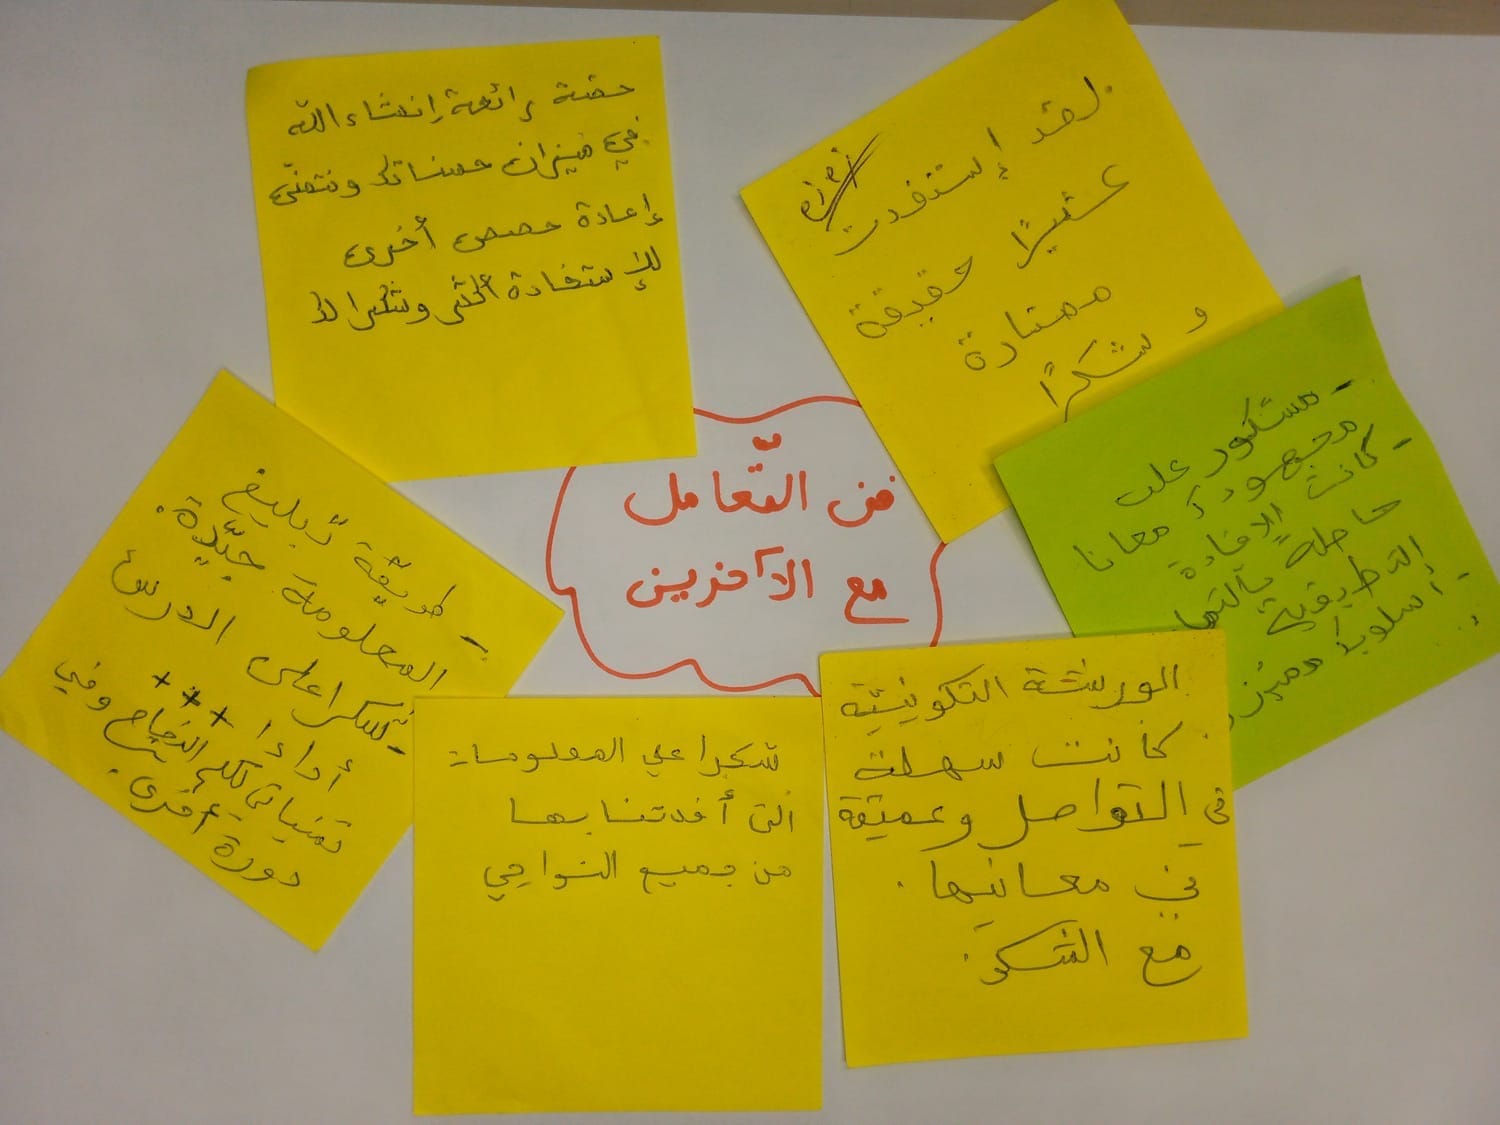 فن التّعامل
مع الآخرين
حصة رائعة إنشاء الله
في ميزان حسناتك ونتمنّى
إعادة حصص أخرى
للإستفادة أكثر وشكرا لك
لقد إستفدت
كثيرًا حقيقة
ممتازة
و شكرًا
- مشكور على
مجهودك معانا
- كانت الإفادة
حاصلة
التطبيقية
- أسلوبك مميز
الورشة التكوينية
كانت سهلة
في التواصل وعميقة
في معانيها.
مع الشكر.
شكرا علي المعلومات
التي أفدتنا بها
من جميع النواحي
- طريقة تبليغ
المعلومة جيّدة.
- شكرا على الدرس
أداءا +++
تمنياتي لكم النجاح وفي
دورة أخرى.